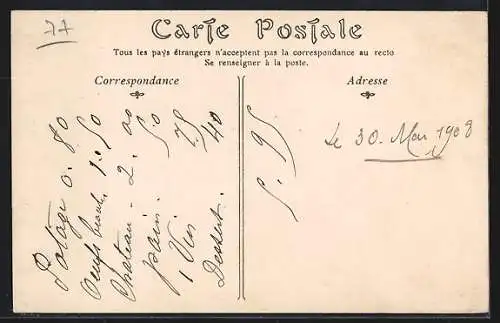 77
Carte Postale
Tous les pays étrangers n'acceptent pas la correspondance au recto
Se renseigner à la poste.
Correspondance
Adresse
Potage 0. 80
Oeufs 1. 50
Chateau - 2. 00
pain. 50
1 Vin 75
Dessert. 40
5. 95
Le 30. Mai 1908